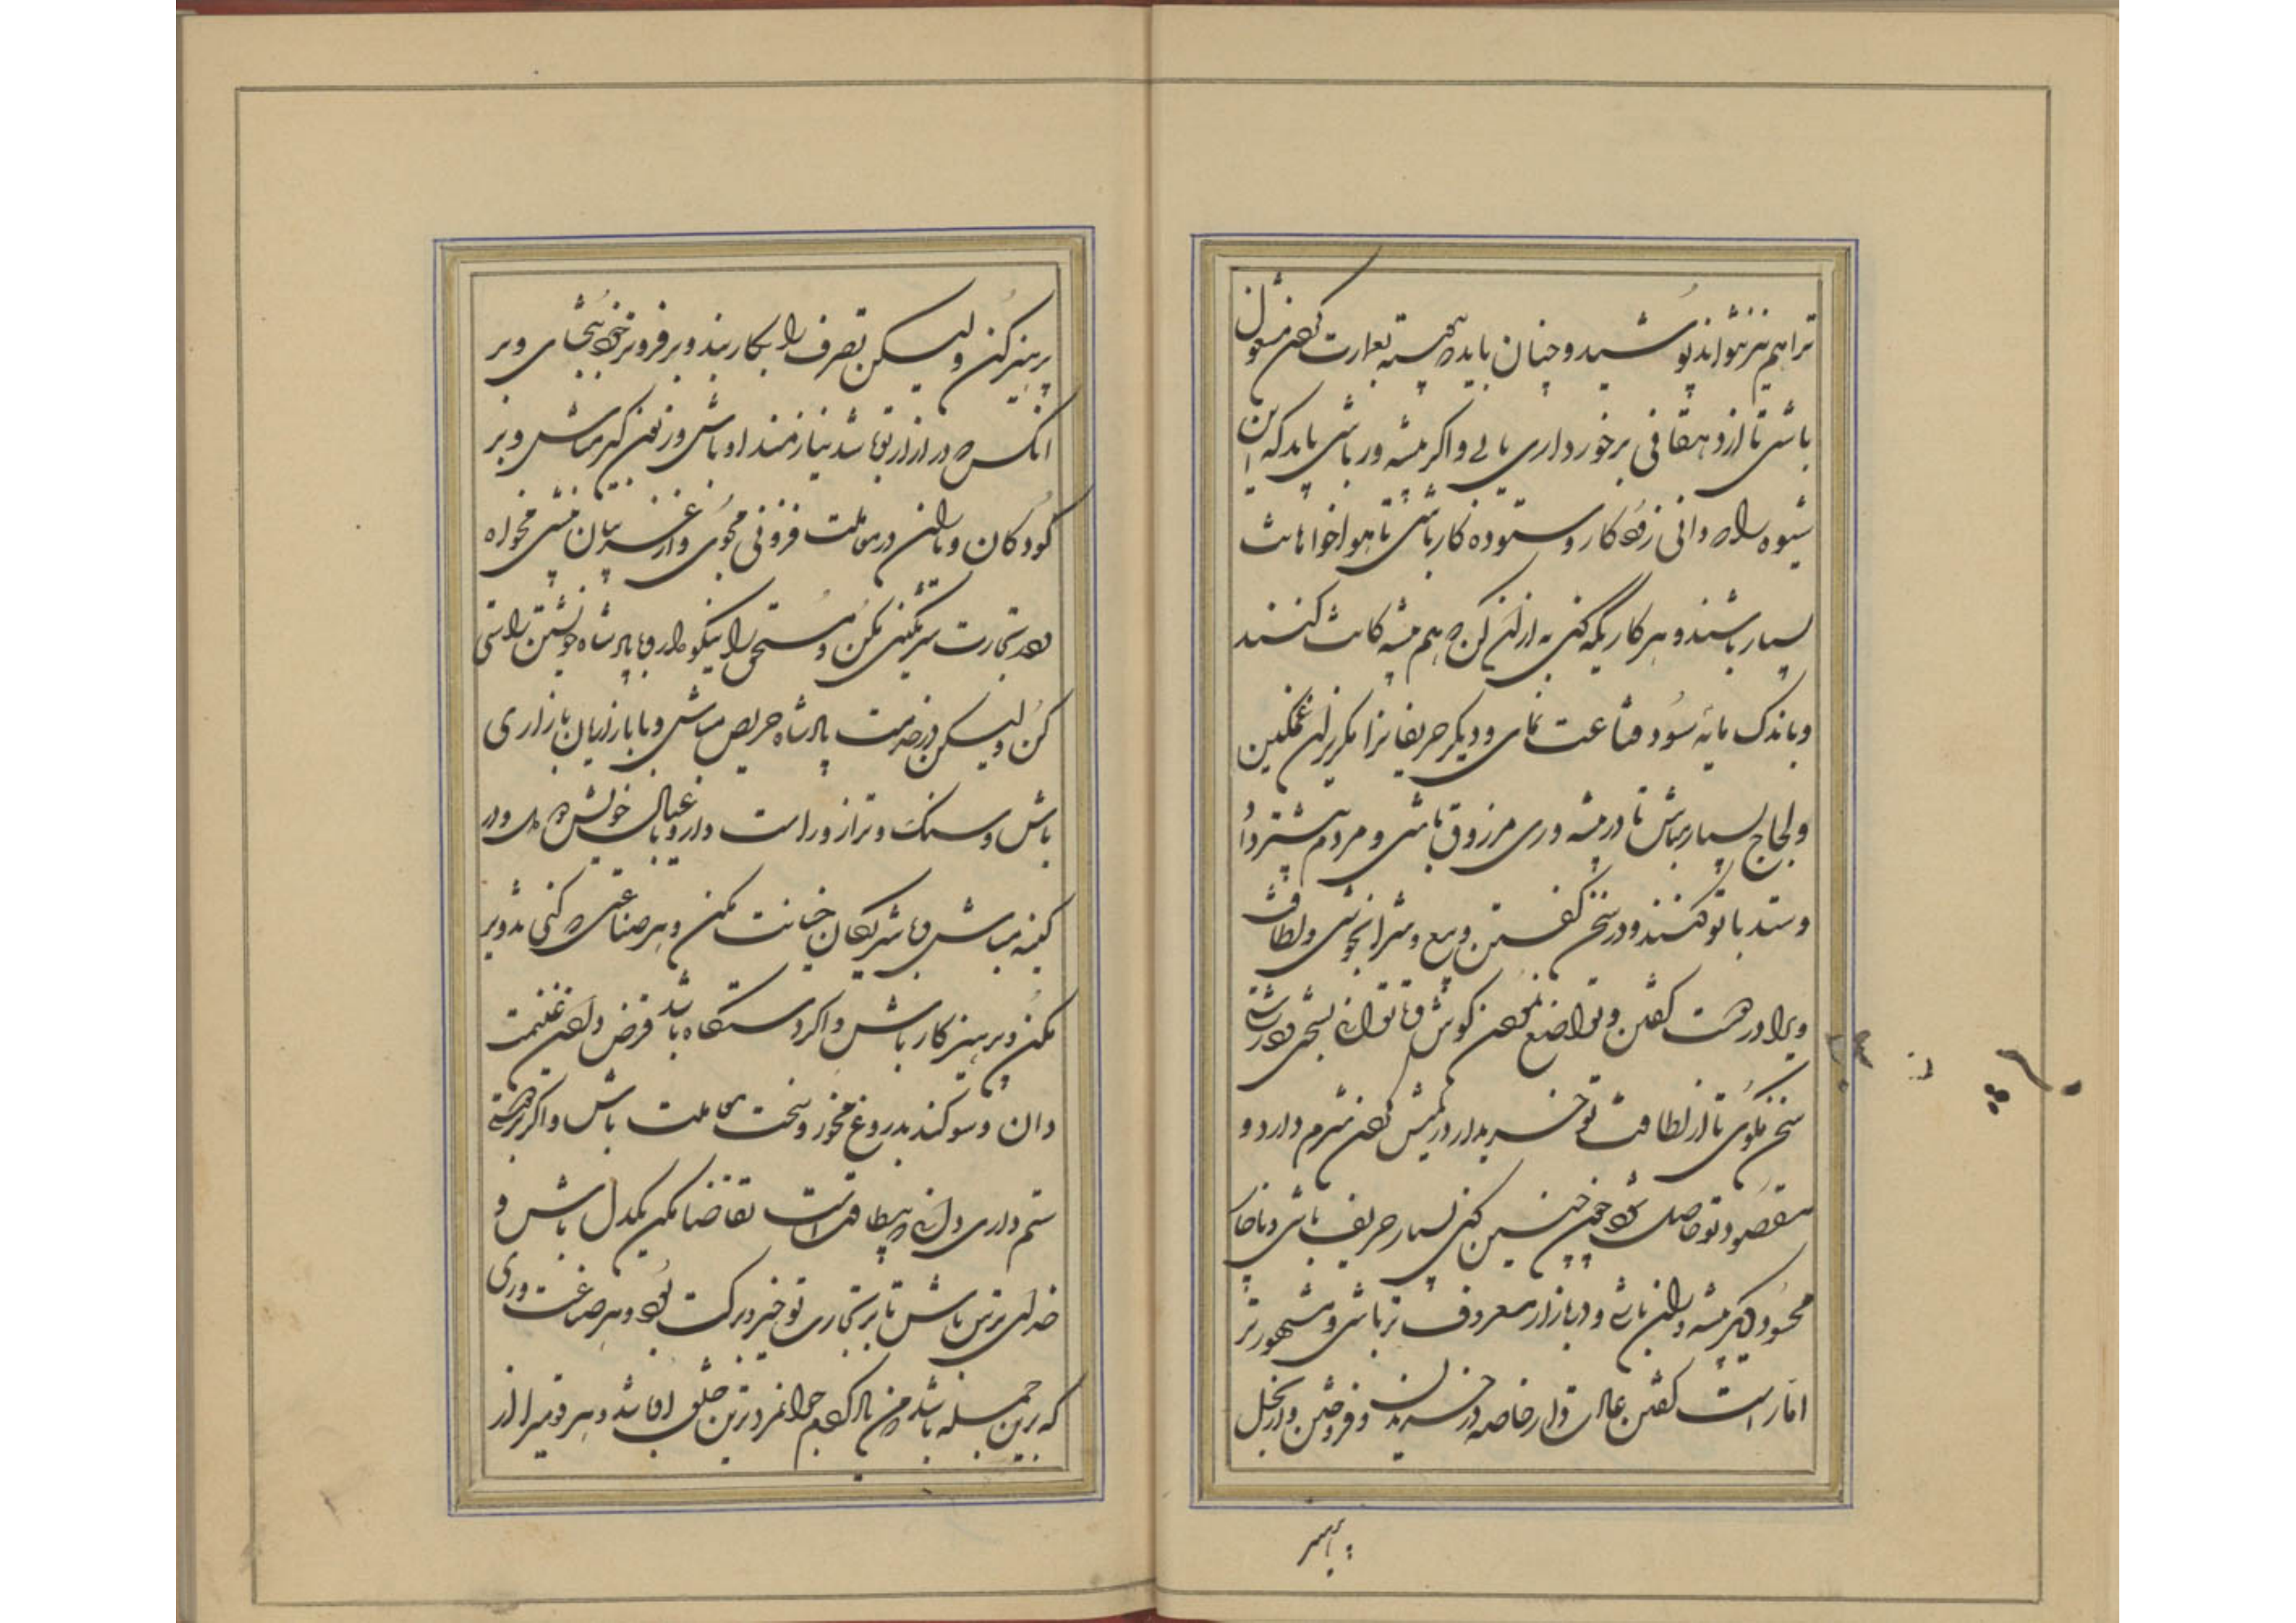 ترا هم هنر نتواند پوشید و چنان باید که همیشه بعمارت کردن مشغول
باشی تا از دهقانی برخورداری یابی و اگر پیشه ور باشی باید که این
شیوه راه دانی زود کار و ستوده کار باشی تا هواخواهانت
بسیار باشند و هر کاریکه کنی به از آن کن که هم پیشه کانت کنند
و باندک مایه سود قناعت نمای و دیگر حریفانرا مگریزان غمگین
و لجاج بسیار مباش تا در پیشه وری مرزوق باشی و مردم بیشتر داد
و ستد با تو کنند و در سخن گفتن وبیع و شرا بخوشی و لطافت
و برادر دوست گفتن و تواضع نمودن کوش تا توانی بسختی و درشتی
سخن مگوی تا از لطافت تو خریدار در مکیس کردن شرم دارد و
مقصود تو حاصل شود چون چنین کنی بسیار حریف باشی و ناچار
محسود دیگر پیشه وران باشی و در بازار معروف تر باشی و مشهورتر
اما راست گفتن عادت دار خاصه در خریدن و فروختن و از بخل
بپرهیز
پرهیز کن ولیکن تصرف را بکار بند و بر فروتر خود ببخشای و بر
انکس که در از تو باشد نیازمند او باش و زبون گیر مباش و بر
کودکان و زنان در معاملت فزونی مجوی و از غریبان بیشی مخواه
و در تجارت شرمگینی مکن و مستحق را نیکو دار و با پادشاه خویشتن راستی
کن ولیکن در خدمت پادشاه حریص مباش و با بازاریان بازاری
باش و سنگ و ترازو راست دار و با عیال خویش دو دل و دو
کیسه مباش و با شریکان خیانت مکن و هر صناعتی که کنی بد و بر
مکن و پرهیزکار باش و اگر دستگاه باشد قرض دادن غنیمت
دان و سوگند بدروغ مخور و سخت معاملت باش و اگر بر درویشی
ستم داری دانی که بیطاقت است تقاضا مکن یکدل باش و
خدای ترس باش تا بر تجارت تو خیر و برکت بود و هر صناعت وری
که برین جمله باشد من که یاد کردم جوانمردترین خلق او باشد و هر قومیرا از